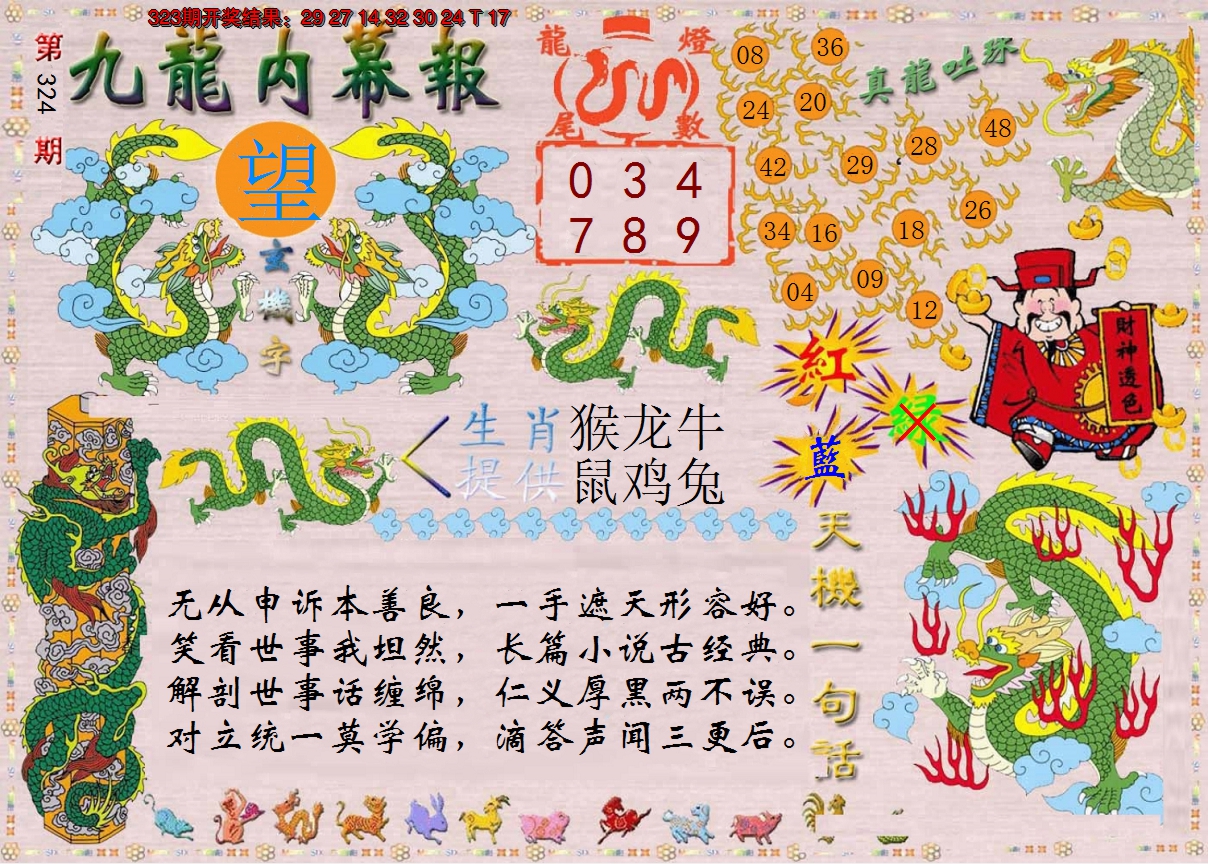 323期开奖结果：29 27 14 32 30 24 T 17
第324期
九龍内幕報
望
玄機字
龍燈
尾數
0 3 4
7 8 9
真龍吐珠
08
36
24
20
48
28
42
29
26
34
16
18
09
04
12
財神透色
紅
绿
藍
生肖 猴龙牛
提供 鼠鸡兔
天機一句话
无从申诉本善良，一手遮天形容好。
笑看世事我坦然，长篇小说古经典。
解剖世事话缠绵，仁义厚黑两不误。
对立统一莫学偏，滴答声闻三更后。